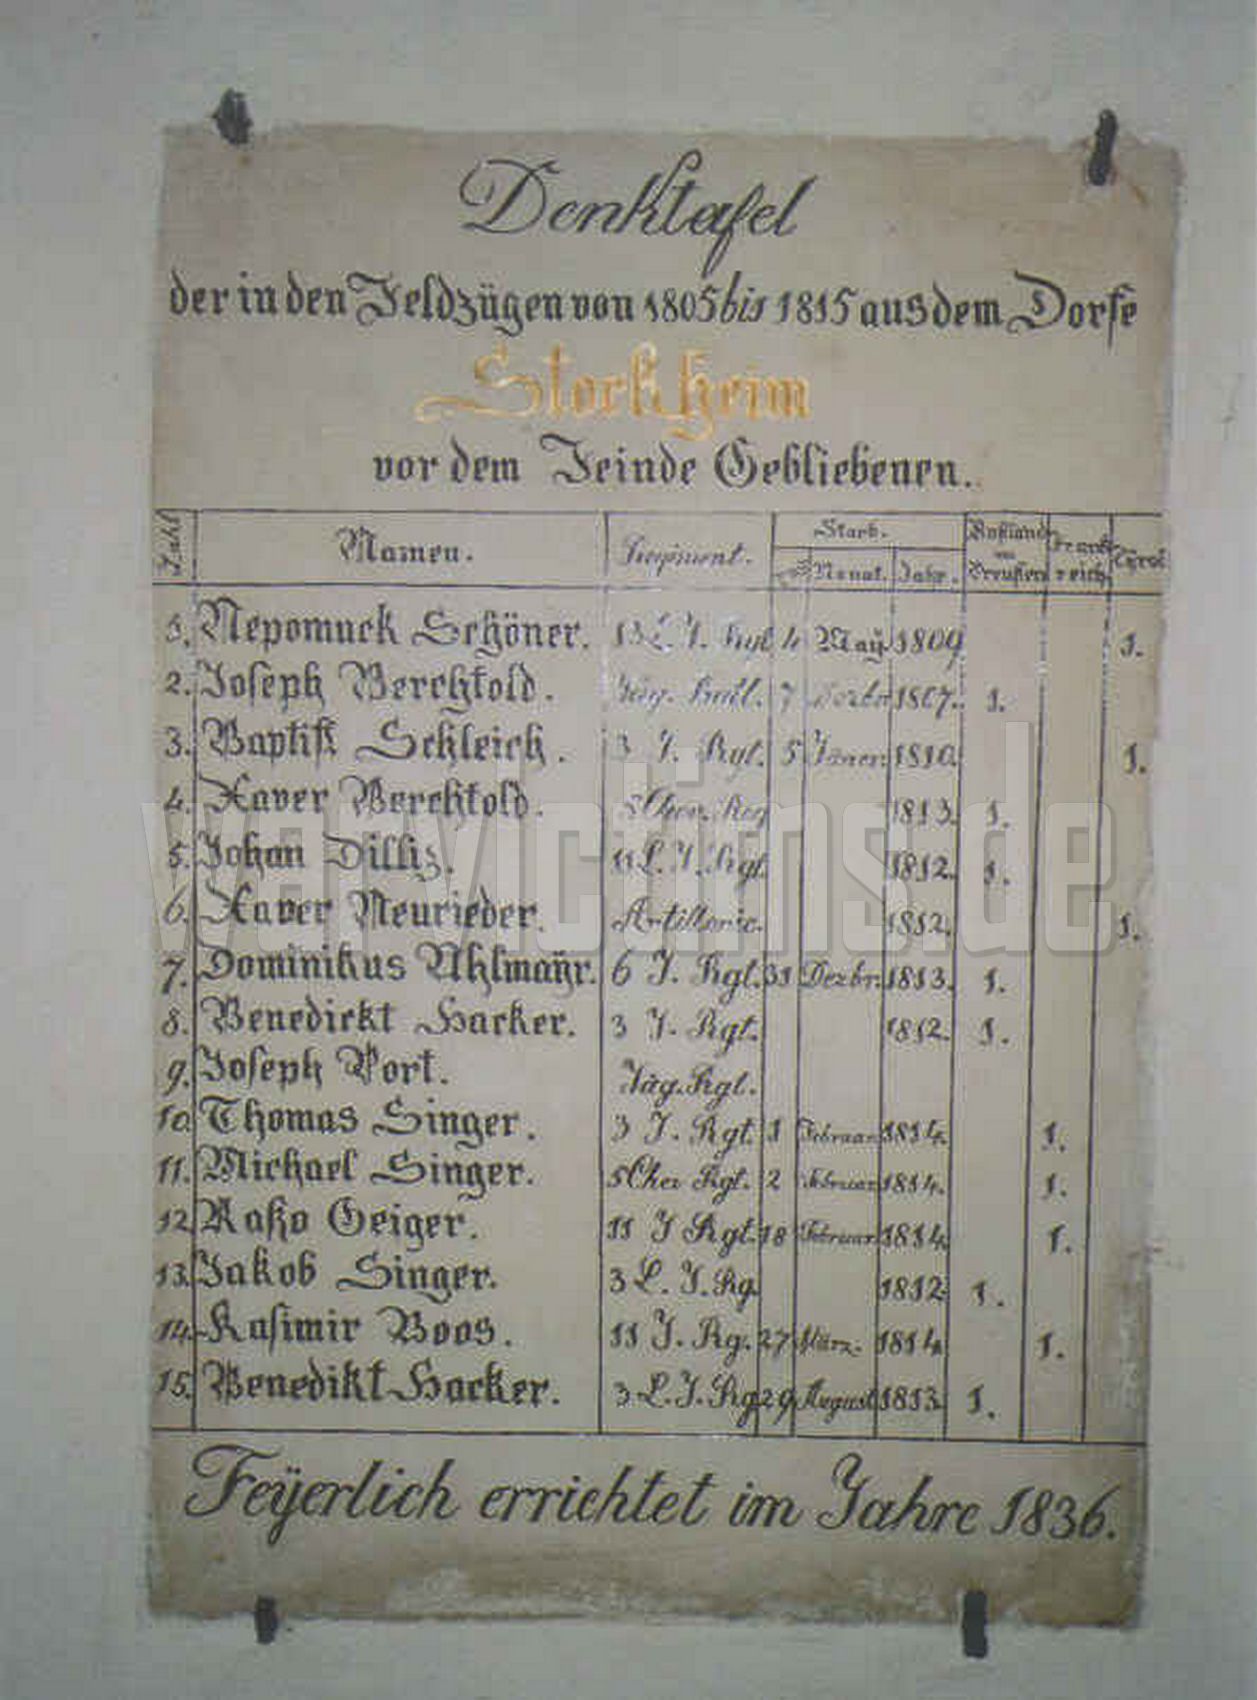 Denktafel
der in den Feldzügen von 1805 bis 1815 aus dem Dorfe
Stockheim
vor dem Feinde Gebliebenen.
Zahl Namen. Regiment. Starb. Monat. Jahr. Rußland Preußen Frankreich. Tÿrol
1. Nepomuck Schöner. 13 L. I. Rgt 4 Maÿ 1809 1.
2. Joseph Berchtold. Jäg. Batl. 7 Dezbr 1807. 1.
3. Baptist Schleich. 3 I. Rgt. 5 Jäner. 1810. 1.
4. Xaver Berchtold. 5 Chev. Reg 1813. 1.
5. Johan Dillis. 11 L. I. Rgt. 1812. 1.
6. Xaver Neurieder. Artillerie. 1812. 1.
7. Dominikus Uhlmaÿr. 6 I. Rgt. 31 Dezbr. 1813. 1.
8. Benedickt Hacker. 3 I. Rgt. 1812. 1.
9. Joseph Port. Jäg. Rgt.
10. Thomas Singer. 3 I. Rgt. 1 Februar. 1814. 1.
11. Michael Singer. 5 Chev Rgt. 2 Februar 1814. 1.
12. Raßo Geiger. 11 I Rgt. 18 Februar. 1814. 1.
13. Jakob Singer. 3 L. I. Rg. 1812 1.
14. Kasimir Boos. 11 I. Rg. 27 März. 1814 1.
15. Benedikt Hacker. 3 L. I. Rg 29 August 1813 1.
Feÿerlich errichtet im Jahre 1836.
warvictims.de